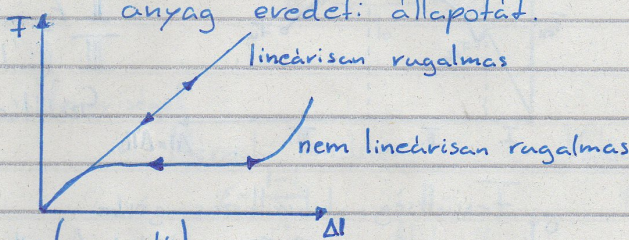 anyag eredeti állapotát.
F
lineárisan rugalmas
nem lineárisan rugalmas
Δl